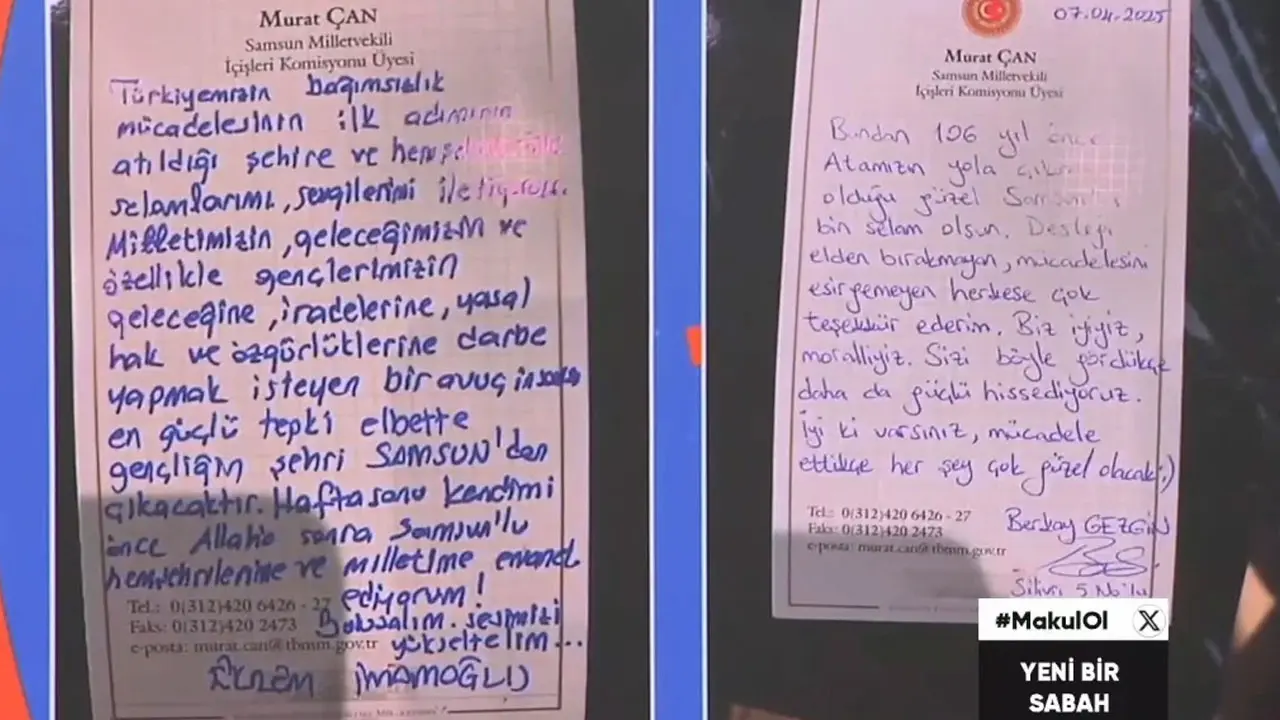 Murat ÇAN
Samsun Milletvekili
İçişleri Komisyonu Üyesi
Türkiyemizin bağımsızlık
mücadelesinin ilk adımının
atıldığı şehire ve
selamlarımı, sevgilerimi iletiyorum.
Milletimizin, geleceğimizin ve
özellikle gençlerimizin
geleceğine, iradelerine, yasal
hak ve özgürlüklerine darbe
yapmak isteyen bir avuç
en güçlü tepki elbette
gençliğin şehri SAMSUN'dan
çıkacaktır. Haftasonu kendimi
önce Allah'a sonra Samsun'lu
hemşehrilerime ve milletime emanet
ediyorum!
Tel.: 0(312)420 6426 - 27
Buluşalım. sesimizi
Faks: 0(312)420 2473
e-posta: murat.can@tbmm.gov.tr
yükseltelim...
EKREM İMAMOĞLU
07.04.2025
Murat ÇAN
Samsun Milletvekili
İçişleri Komisyonu Üyesi
Bundan 106 yıl önce
Atamızın yola
olduğu güzel
bin selam olsun. Desteği
elden bırakmayan, mücadelesini
esirgemeyen herkese çok
teşekkür ederim. Biz iyiyiz,
moralliyiz. Sizi böyle gördükçe
daha da güçlü hissediyoruz.
İyi ki varsınız, mücadele
ettikçe her şey çok güzel olacak :)
Tel.: 0(312)420 6426 - 27
Faks: 0(312)420 2473
e-posta: murat.can@tbmm.gov.tr
Berkay GEZGİN
Silivri 5 No'lu
#MakulOl X
YENİ BİR
SABAH